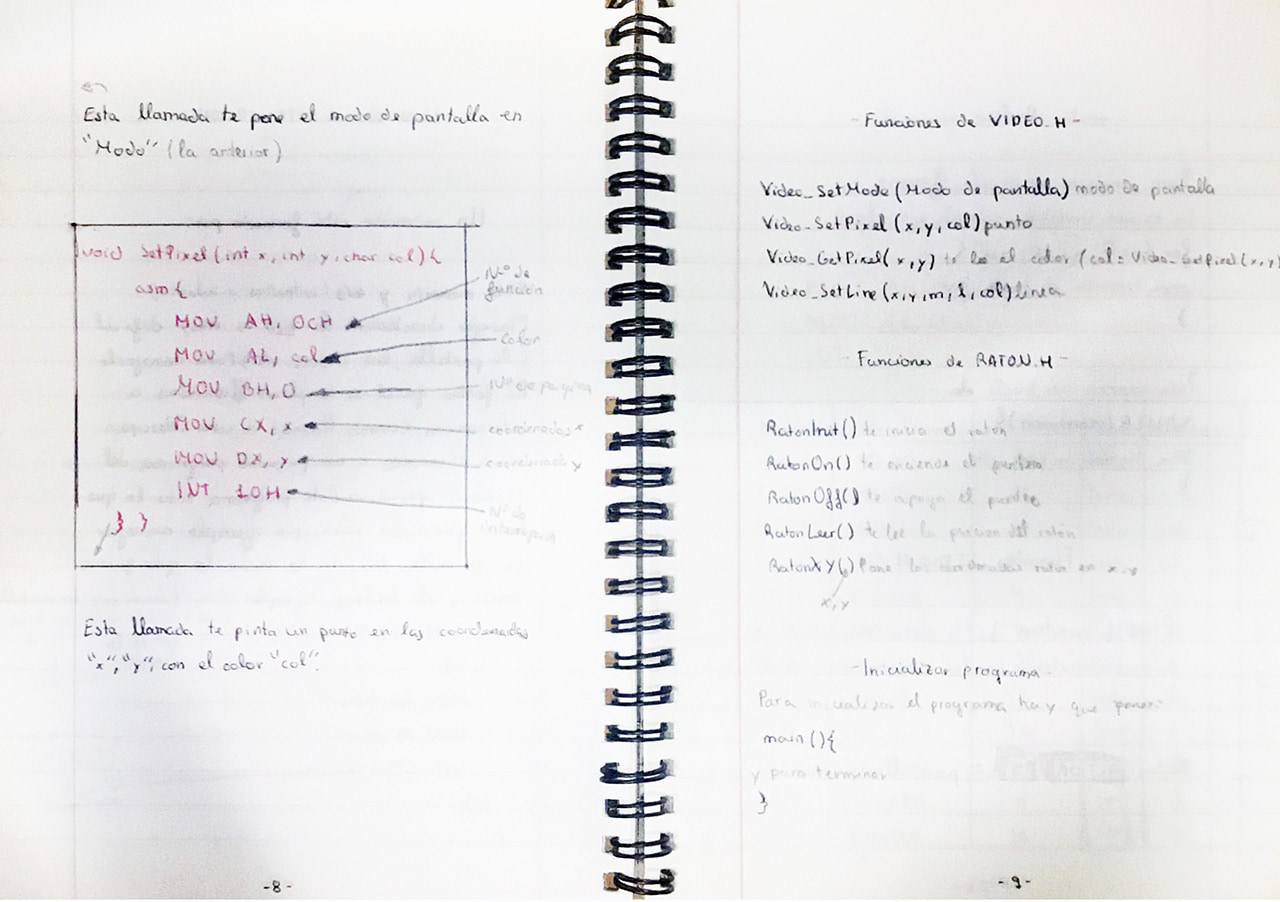 Esta llamada te pone el modo de pantalla en
"Modo" (la anterior)
void SetPixel(int x, int y, char col){
asm{
MOV AH, 0CH
Nº de
función
MOV AL, col
color
MOV BH, 0
Nº de pagina
MOV CX, x
coordenadas x
MOV DX, y
coordenadas y
INT 10H
Nº de
} }
Esta llamada te pinta un punto en las coordenadas
"x","y", con el color "col".
-8-
- Funciones de VIDEO.H -
Video_SetMode(Modo de pantalla) modo de pantalla
Video_SetPixel (x,y,col) punto
Video_GetPixel(x,y) te lee el color (col=Video_GetPixel(x,y)
Video_SetLine(x,y,m,l,col) linea
- Funciones de RATON.H -
RatonInit() te inicia el raton
RatonOn() te enciende el puntero
RatonOff() te apaga el puntero
RatonLeer() te lee la posicion del ratón
RatonXY() Pone las coordenadas raton en x,y
x,y
- Inicializar programa -
Para inicializar el programa hay que poner:
main(){
y para terminar
}
-9-